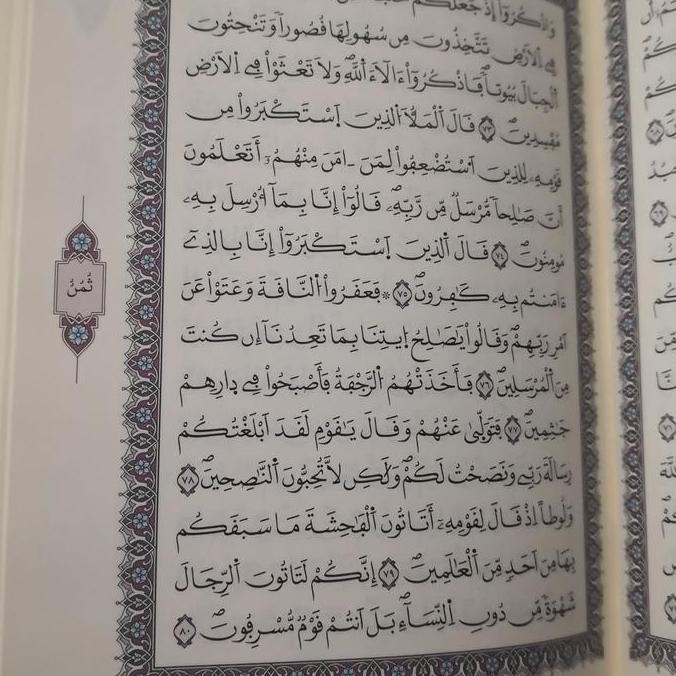 وَاذْكُرُوٓاْ إِذْ جَعَلَكُمْ
فِے اِلَارْضِ تَتَّخِذُونَ مِن سُهُولِهَا قُصُوراٗ وَتَنْحِتُونَ
اَلْجِبَالَ بُيُوتاٗۖ فَاذْكُرُوٓاْ ءَالَآءَ اَللَّهِۖ وَلَا تَعْثَوْاْ فِے اِلَارْضِ
مُفْسِدِينَۖ ٧٣ قَالَ اَلْمَلَأُ اَلذِينَ اَسْتَكْبَرُواْ مِن
قَوْمِهِۦ لِلذِينَ اَسْتُضْعِفُواْ لِمَنَ اٰمَنَ مِنْهُمُۥٓ أَتَعْلَمُونَ
أَنَّ صَٰلِحاٗ مُّرْسَلٞ مِّن رَّبِّهِۦۖ قَالُوٓاْ إِنَّا بِمَآ أُرْسِلَ بِهِۦ
مُومِنُونَۖ ٧٤ قَالَ اَلذِينَ اَسْتَكْبَرُوٓاْ إِنَّا بِالذِےٓ
ءَامَنتُم بِهِۦ كَٰفِرُونَۖ ٧٥ ۞ فَعَقَرُواْ اُلنَّاقَةَ وَعَتَوْاْ عَنَ
اَمْرِ رَبِّهِمْۖ وَقَالُواْ يَٰصَٰلِحُ اُيتِنَا بِمَا تَعِدُنَآ إِن كُنتَ
مِنَ اَلْمُرْسَلِينَۖ ٧٦ فَأَخَذَتْهُمُ اُلرَّجْفَةُ فَأَصْبَحُواْ فِے دِارِهِمْ
جَٰثِمِينَۖ ٧٧ فَتَوَلَّىٰ عَنْهُمْ وَقَالَ يَٰقَوْمِ لَقَدَ اَبْلَغْتُكُمْ
رِسَالَةَ رَبِّے وَنَصَحْتُ لَكُمْۖ وَلَٰكِن لَّا تُحِبُّونَ اَلنَّٰصِحِينَۖ ٧٨
وَلُوطاً اِذْ قَالَ لِقَوْمِهِۦٓ أَتَاتُونَ اَلْفَٰحِشَةَ مَا سَبَقَكُم
بِهَا مِنَ اَحَدٖ مِّنَ اَلْعَٰلَمِينَۖ ٧٩ إِنَّكُمْ لَتَاتُونَ اَلرِّجَالَ
شَهْوَةٗ مِّن دُونِ اِلنِّسَآءِۖ بَلَ اَنتُمْ قَوْمٞ مُّسْرِفُونَۖ ٨٠
ثُمُنُ